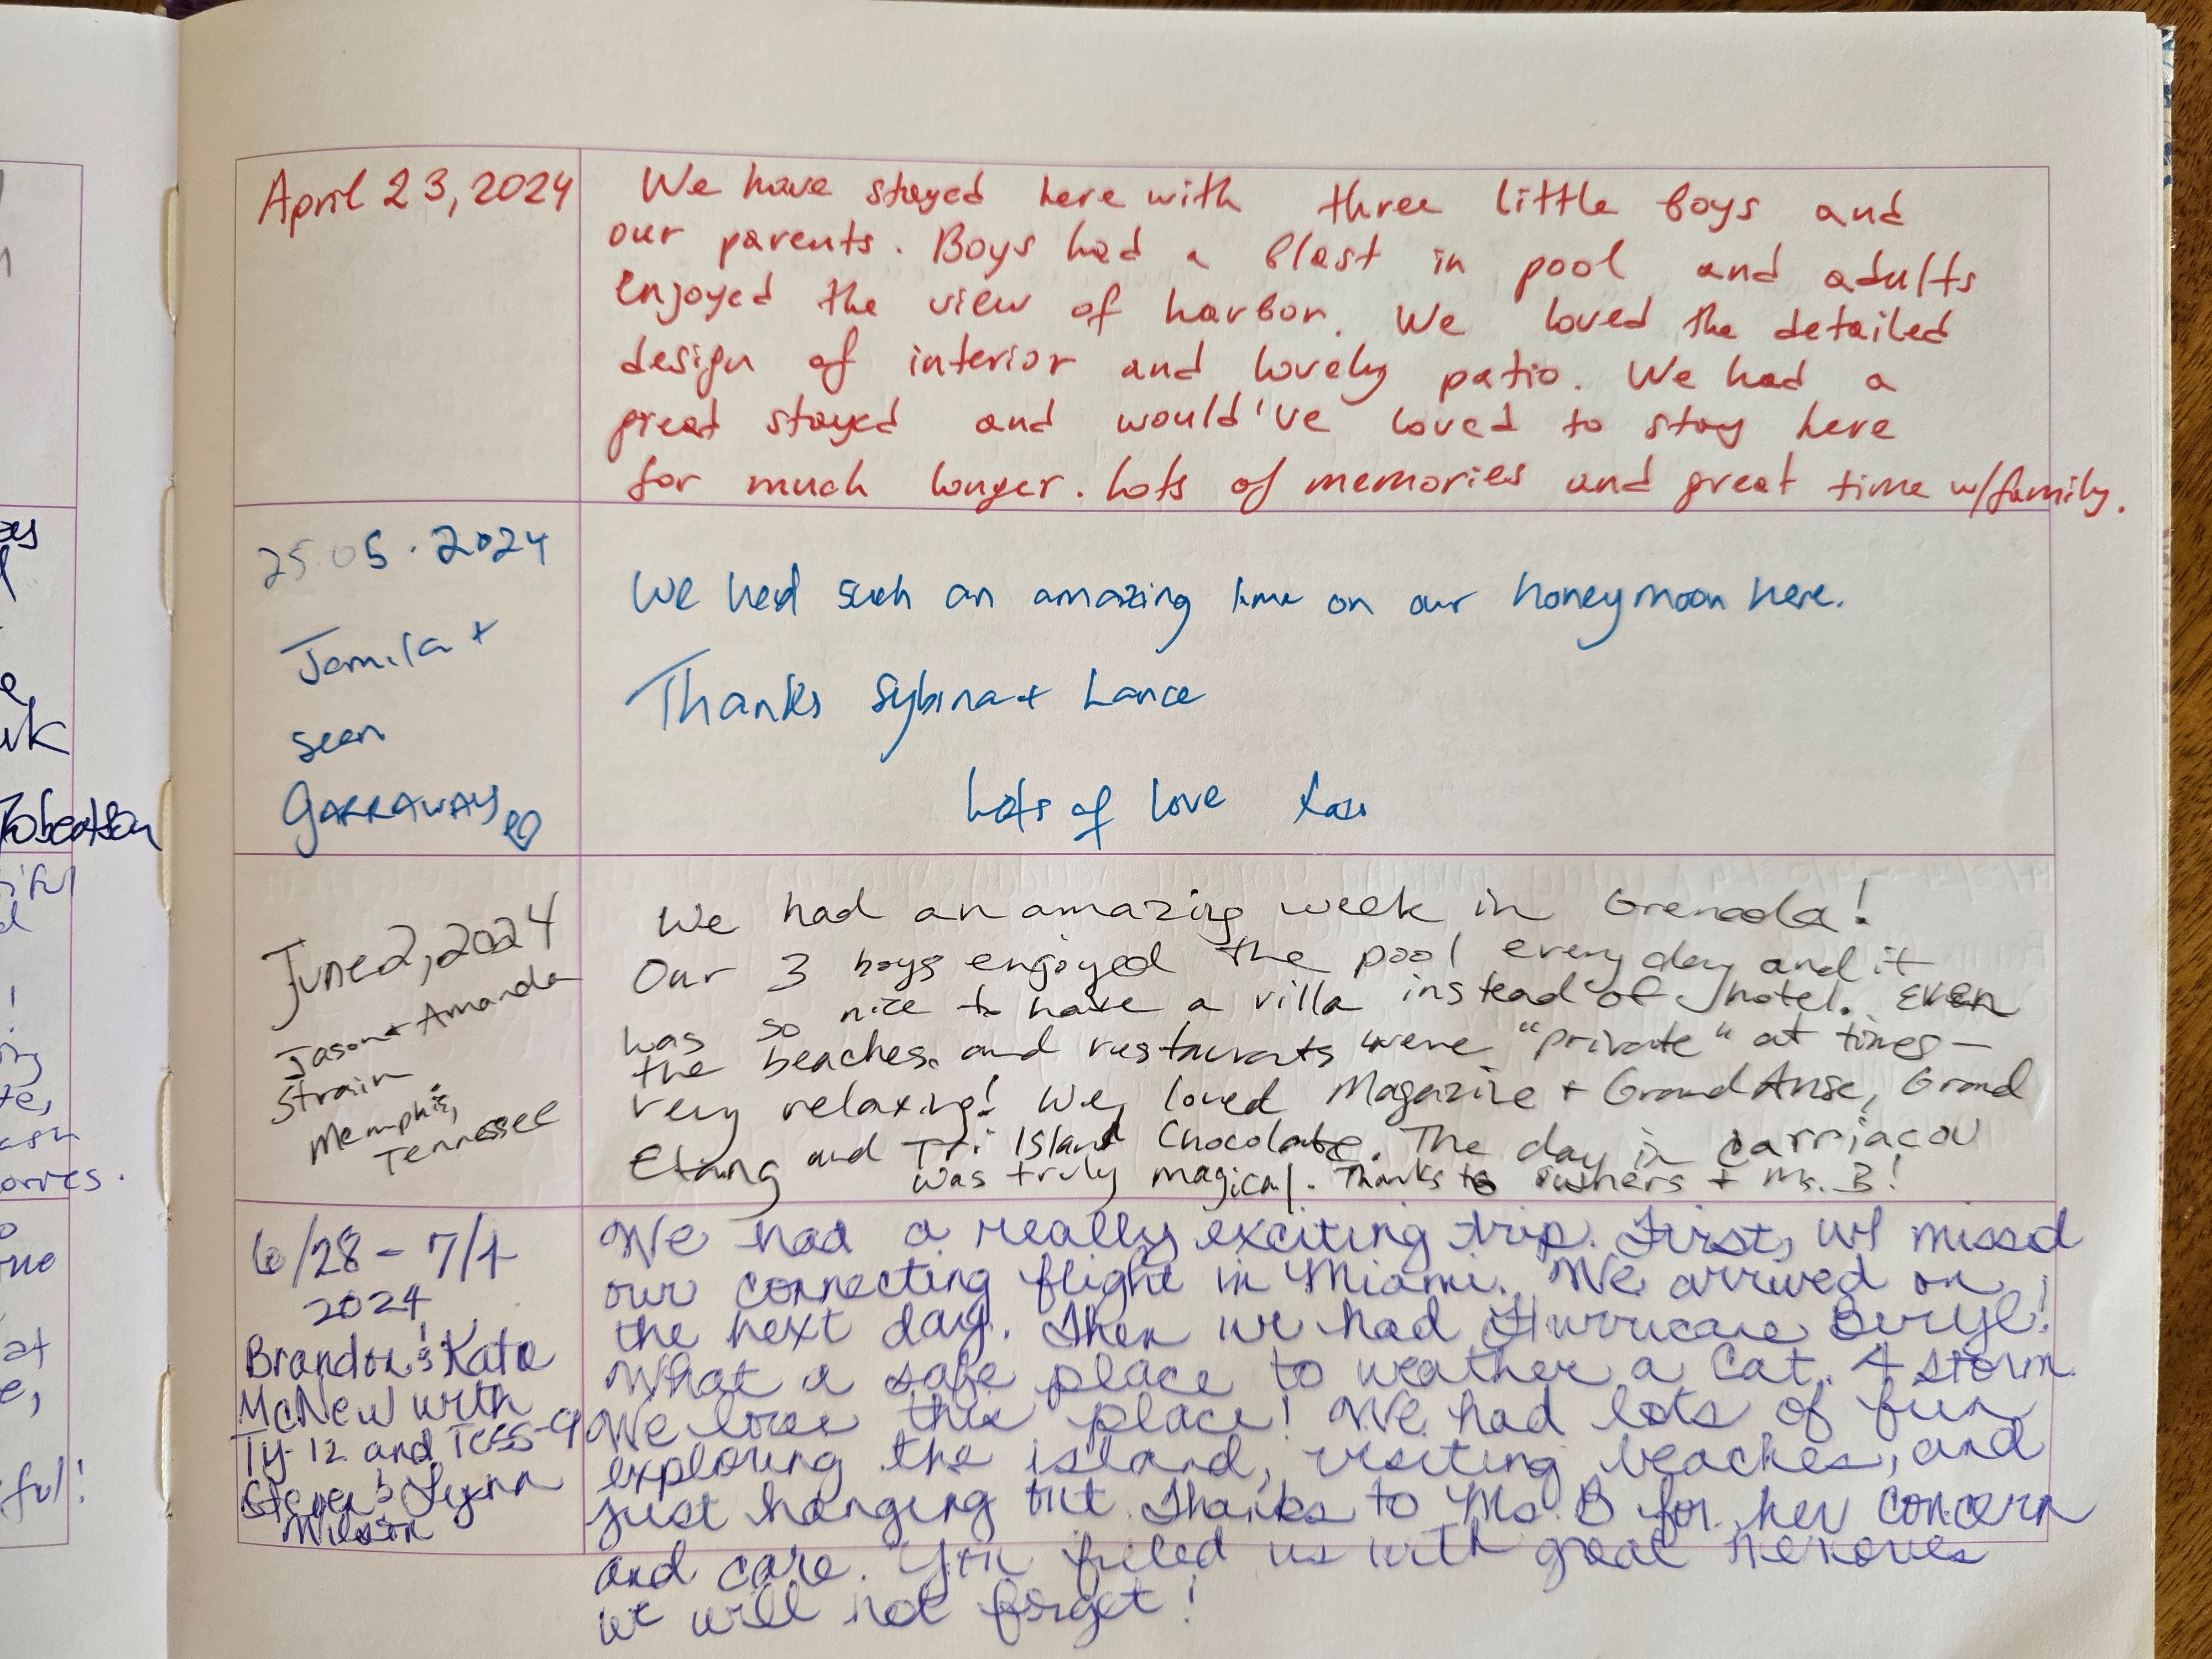 April 23, 2024
We have stayed here with three little boys and
our parents. Boys had a blast in pool and adults
enjoyed the view of harbor. We loved the detailed
design of interior and lovely patio. We had a
great stayed and would've loved to stay here
for much longer. Lots of memories and great time w/family.
25.05.2024
Jamila +
sean
GARRAWAY
We had such an amazing time on our honeymoon here.
Thanks Sybina + Lance
Lots of love
June 2, 2024
Jason + Amanda
Strain
Memphis,
Tennessee
We had an amazing week in Grenada!
Our 3 boys enjoyed the pool every day and it
was so nice to have a villa instead of hotel. Even
the beaches and restaurants were "private" at times -
very relaxing! We loved Magazine + Grand Anse, Grand
Etang and Tri Island Chocolate. The day in Carriacou
was truly magical. Thanks to + Ms. B!
6/28 - 7/4
2024
Brandon & Kate
McNew with
Ty-12 and Tess-9
Steven & Lynn
Wilson
We had a really exciting trip. First, we missed
our connecting flight in Miami. We arrived on
the next day. Then we had Hurricane Beryl!
What a safe place to weather a Cat. 4 storm
We love this place! We had lots of fun
exploring the island, visiting beaches, and
just hanging out. Thanks to Ms. B for her concern
and care. You filled us with great memories
we will not forget!